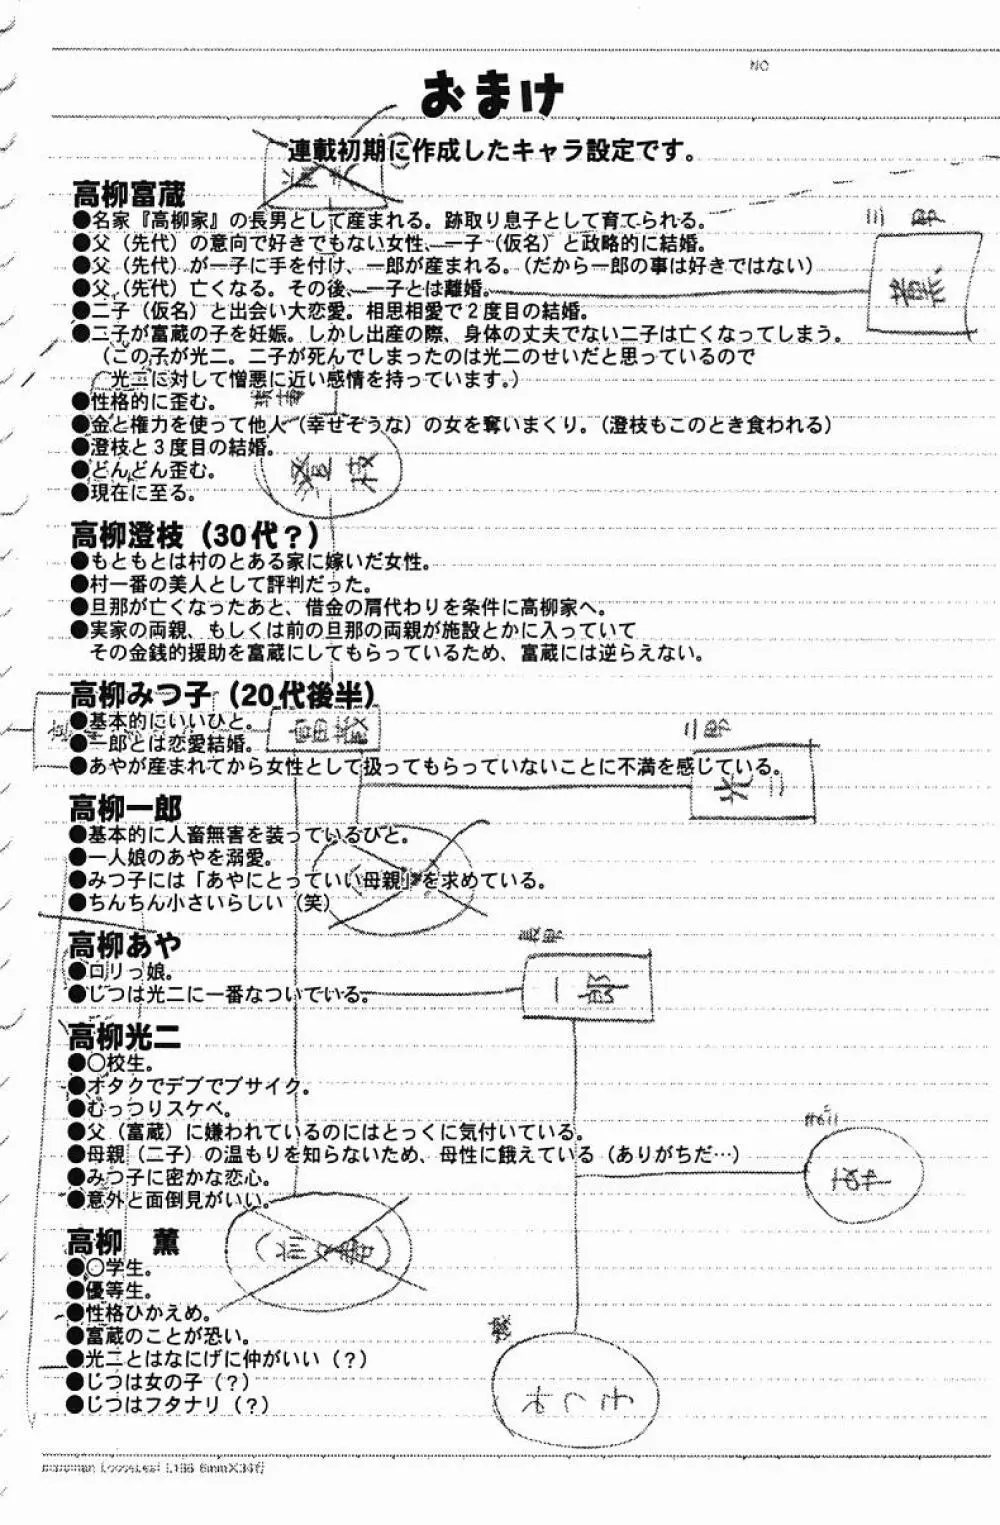 NO
おまけ
連載初期に作成したキャラ設定です。
高柳富蔵
●名家『高柳家』の長男として産まれる。跡取り息子として育てられる。
●父(先代)の意向で好きでもない女性、一子(仮名)と政略的に結婚。
●父(先代)が一子に手を付け、一郎が産まれる。(だから一郎の事は好きではない)
●父(先代)亡くなる。その後、一子とは離婚。
●二子(仮名)と出会い大恋愛。相思相愛で2度目の結婚。
●二子が富蔵の子を妊娠。しかし出産の際、身体の丈夫でない二子は亡くなってしまう。
(この子が光二。二子が死んでしまったのは光二のせいだと思っているので
光二に対して憎悪に近い感情を持っています。)
●性格的に歪む。
●金と権力を使って他人(幸せそうな)の女を奪いまくり。(澄枝もこのとき食われる)
●澄枝と3度目の結婚。
●どんどん歪む。
●現在に至る。
高柳澄枝(30代?)
●もともとは村のとある家に嫁いだ女性。
●村一番の美人として評判だった。
●旦那が亡くなったあと、借金の肩代わりを条件に高柳家へ。
●実家の両親、もしくは前の旦那の両親が施設とかに入っていて
その金銭的援助を富蔵にしてもらっているため、富蔵には逆らえない。
高柳みつ子(20代後半)
●基本的にいいひと。
●一郎とは恋愛結婚。
●あやが産まれてから女性として扱ってもらっていないことに不満を感じている。
高柳一郎
●基本的に人畜無害を装っているひと。
●一人娘のあやを溺愛。
●みつ子には「あやにとっていい母親」を求めている。
●ちんちん小さいらしい(笑)
高柳あや
●ロリっ娘。
●じつは光二に一番なついている。
高柳光二
●○校生。
●オタクでデブでブサイク。
●むっつりスケベ。
●父(富蔵)に嫌われているのにはとっくに気付いている。
●母親(二子)の温もりを知らないため、母性に餓えている(ありがちだ…)
●みつ子に密かな恋心。
●意外と面倒見がいい。
高柳 薫
●○学生。
●優等生。
●性格ひかえめ。
●富蔵のことが恐い。
●光二とはなにげに仲がいい(?)
●じつは女の子(?)
●じつはフタナリ(?)
三郎
薫
澄枝
富蔵
二郎
光二
長男
一郎
みつ子